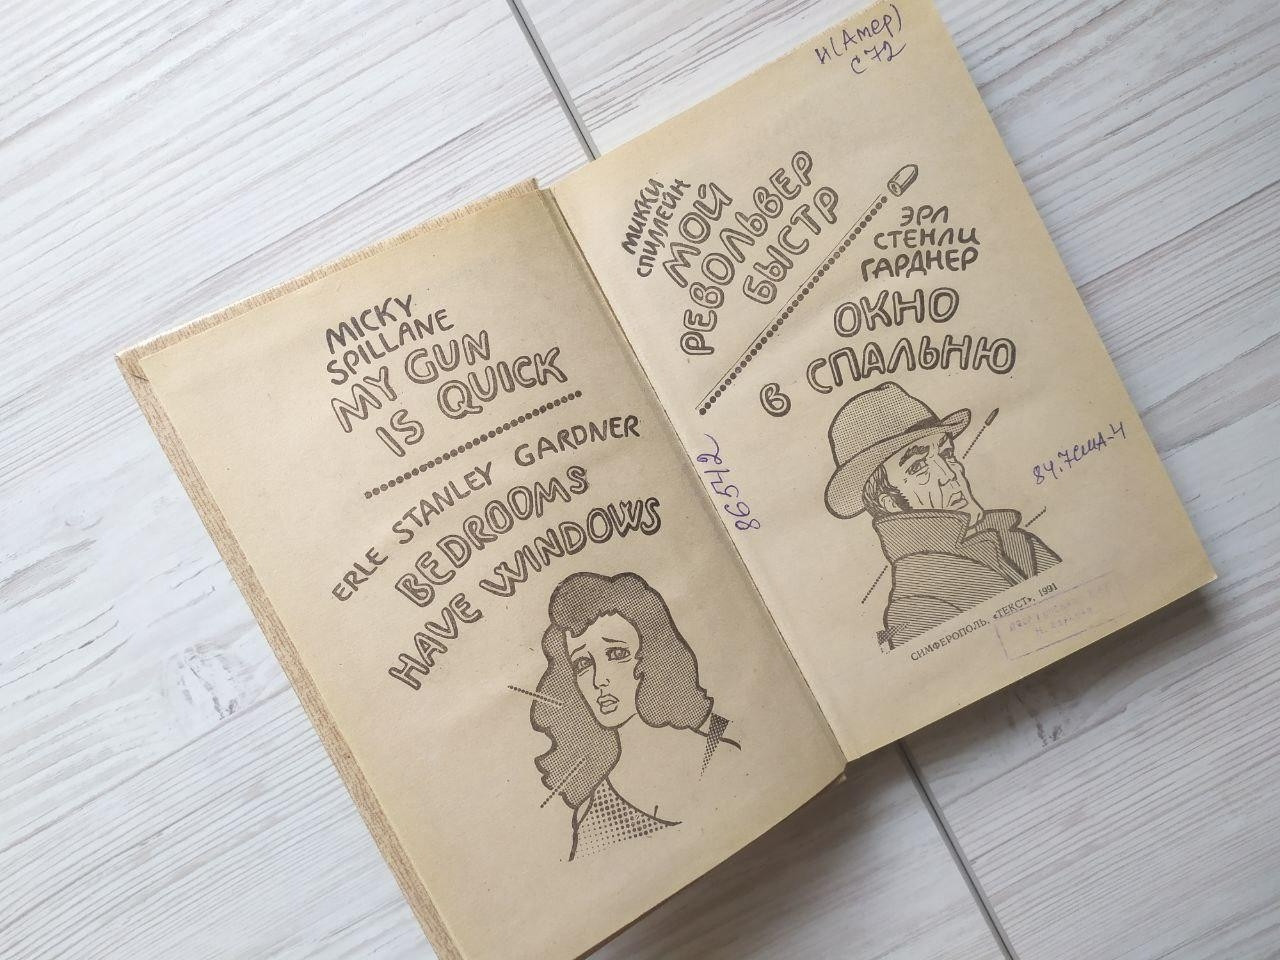 MICKY
SPILLANE
MY GUN
IS QUICK
ERLE STANLEY GARDNER
BEDROOMS
HAVE WINDOWS
И(Амер)
С72
МИККИ
СПИЛЛЕЙН
МОЙ
РЕВОЛЬВЕР
БЫСТР
ЭРЛ
СТЕНЛИ
ГАРДНЕР
ОКНО
В СПАЛЬНЮ
86542
84.7США-4
СИМФЕРОПОЛЬ, «ТЕКСТ», 1991